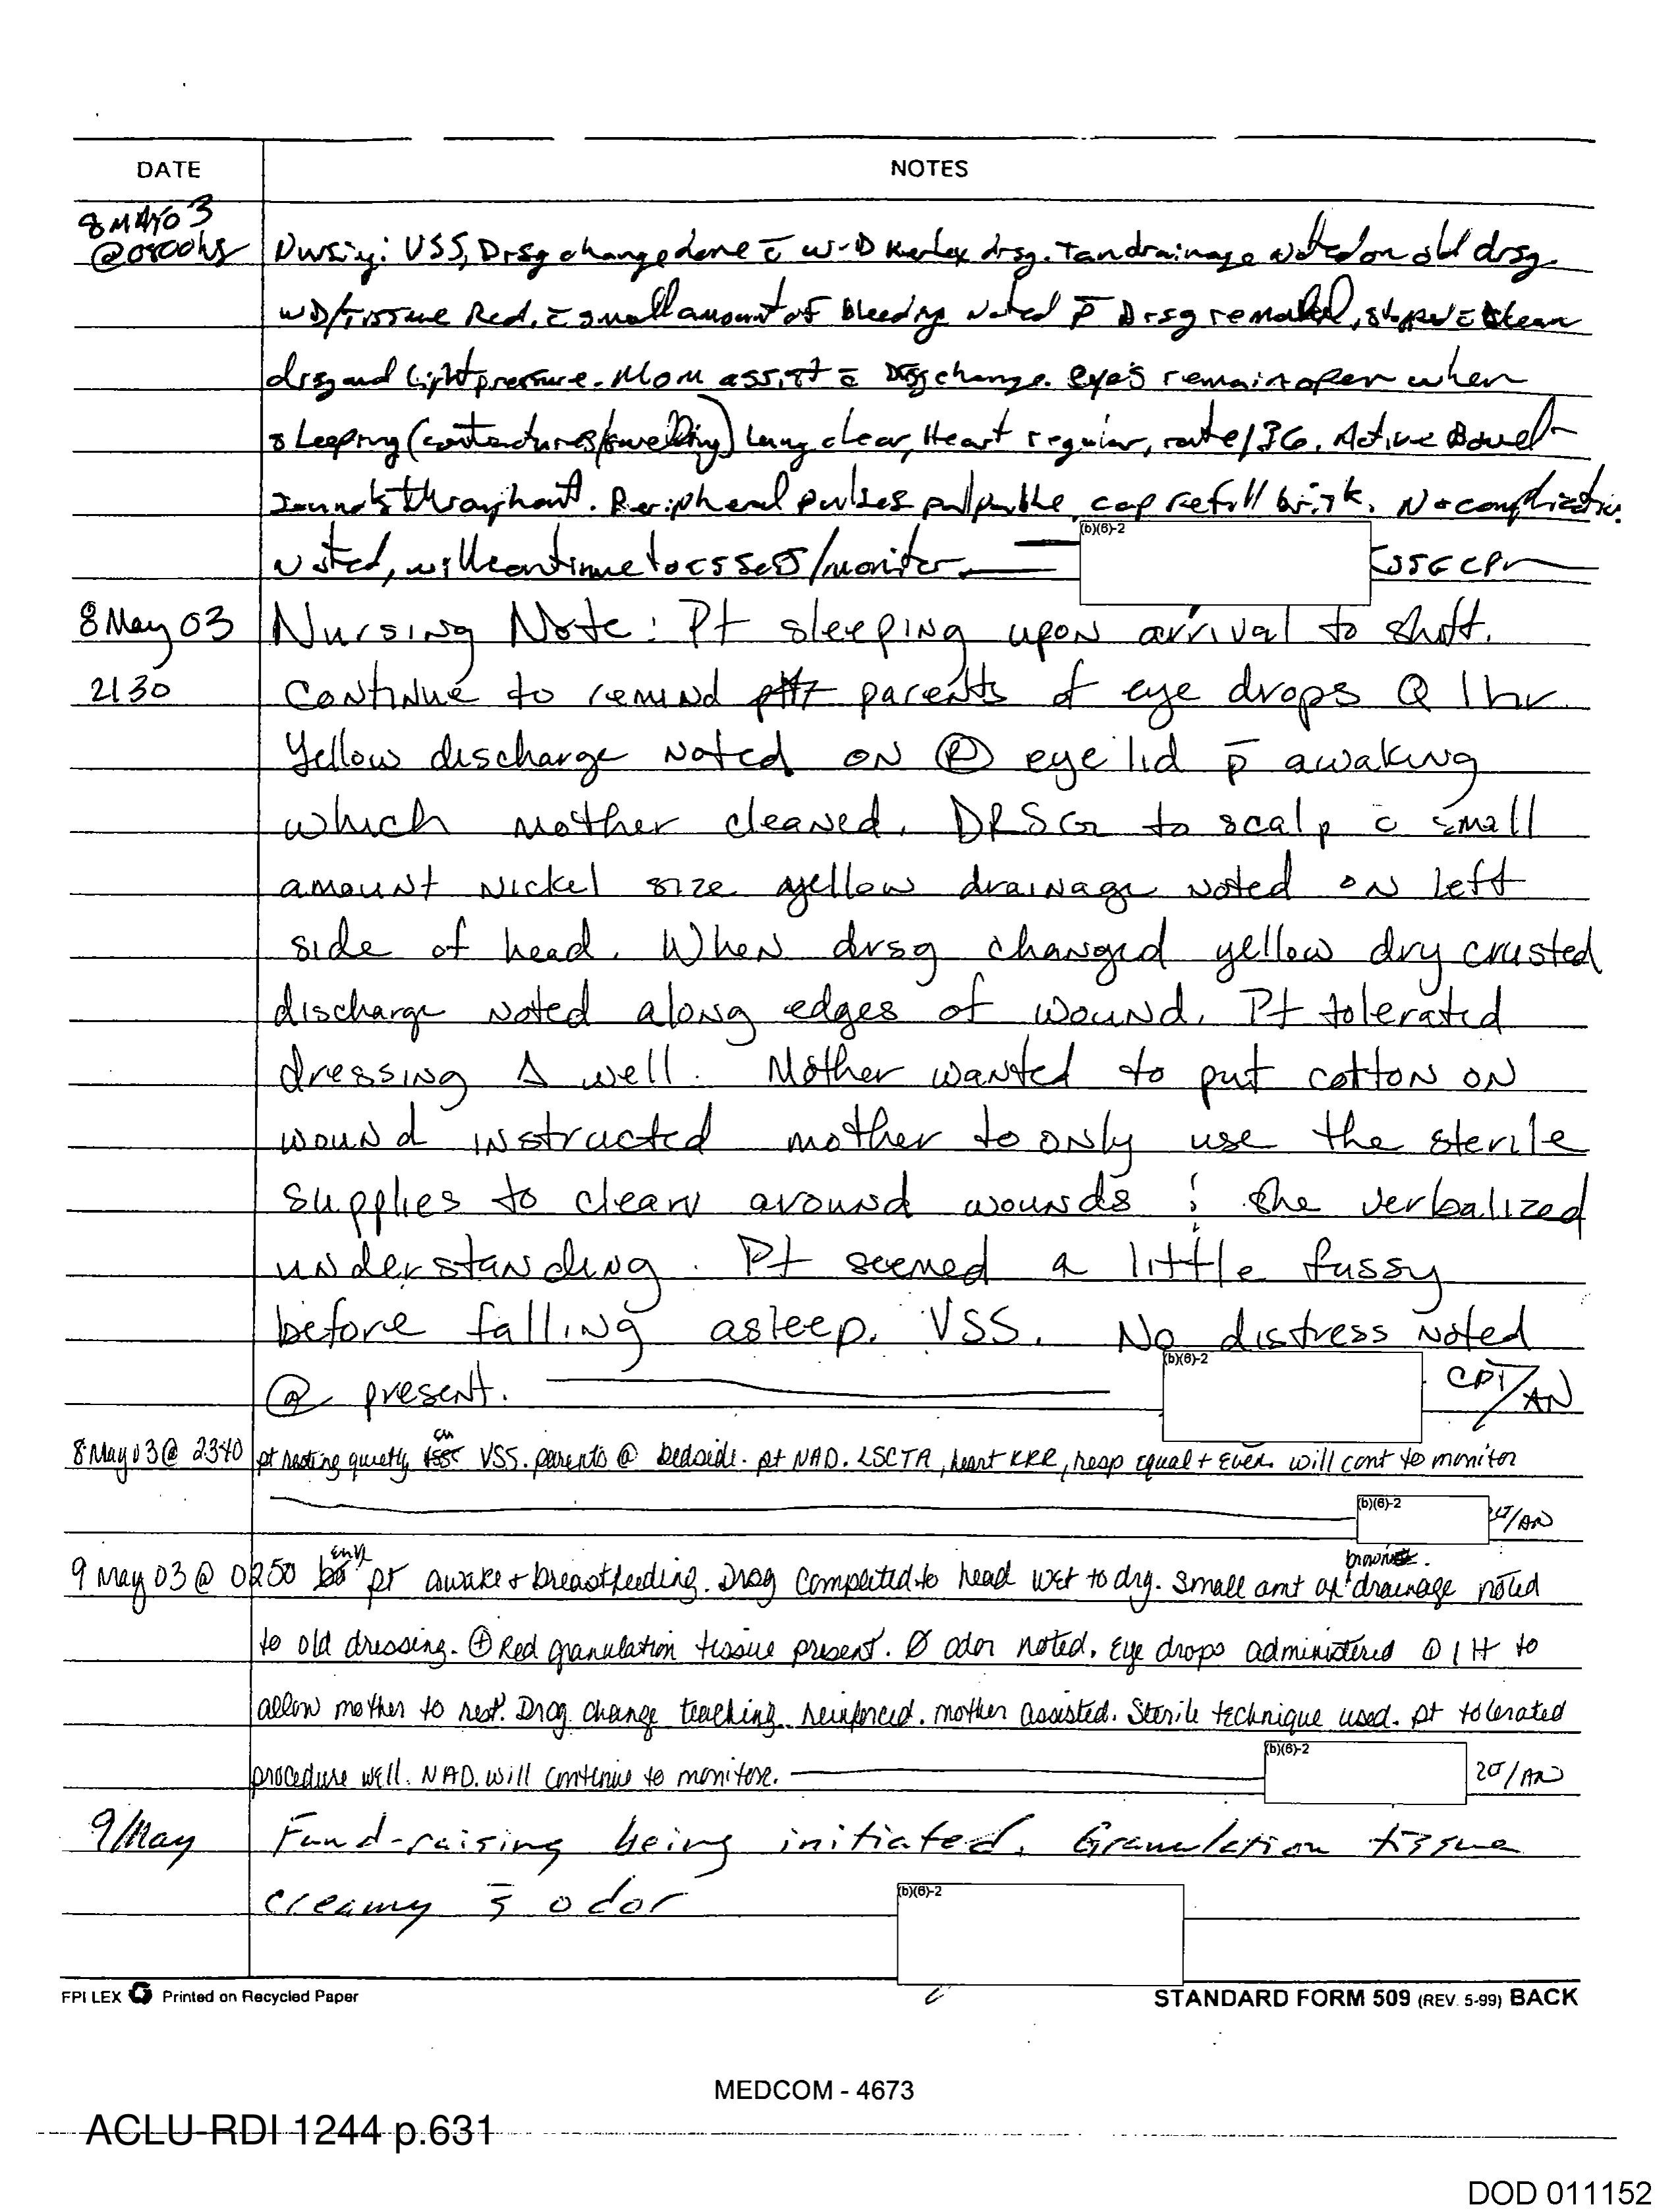 DATE NOTES
8 MAY 03
@0800hs Nursing: VSS, Drsg change done c̄ W-D Kerlex drsg. Tan drainage noted on old drsg.
WD/Tissue Red, c̄ small amount of bleeding noted p̄ Drsg removed, stopped c̄ clean
drsg and light pressure. Mom assist c̄ Drsg change. eye's remain open when
sleeping (contractures/swelling) lung clear, Heart regular, rate 136. Active Bowel
Sounds throughout. Peripheral pulses palpable, cap refill brisk. No complications
noted, will continue to assess/monitor. (b)(6)-2
8 May 03 Nursing Note: Pt sleeping upon arrival to shift.
2130 Continue to remind parents of eye drops Q 1 hr
Yellow discharge noted on Ⓡ eye lid p̄ awaking
which mother cleaned. DRSG to scalp c̄ small
amount nickel size yellow drainage noted on left
side of head. When drsg changed yellow dry crusted
discharge noted along edges of wound. Pt tolerated
dressing Δ well. Mother wanted to put cotton on
wound instructed mother to only use the sterile
supplies to clean around wounds ; she verbalized
understanding. Pt seemed a little fussy
before falling asleep. VSS. No distress noted
@ present. (b)(6)-2 CPT/AN
8 May 03 @ 2340 pt resting quietly VSS. parents @ bedside. pt NAD. LSCTA, heart RRR, resp equal + even. will cont to monitor
(b)(6)-2 2LT/AN
9 May 03 @ 0250 pt awake + breastfeeding. Drsg completed to head wet to dry. small amt of brown drainage noted
to old dressing. ⊕ Red granulation tissue present. Ø odor noted. Eye drops administered Q 1 H to
allow mother to rest. Drsg. change teaching reinforced. mother assisted. Sterile technique used. pt tolerated
procedure well. NAD. will continue to monitor. (b)(6)-2 2LT/AN
9/May Fund-raising being initiated. Granulation tissue
creamy s̄ odor (b)(6)-2
FPI LEX Printed on Recycled Paper STANDARD FORM 509 (REV. 5-99) BACK
MEDCOM - 4673
ACLU-RDI 1244 p.631
DOD 011152